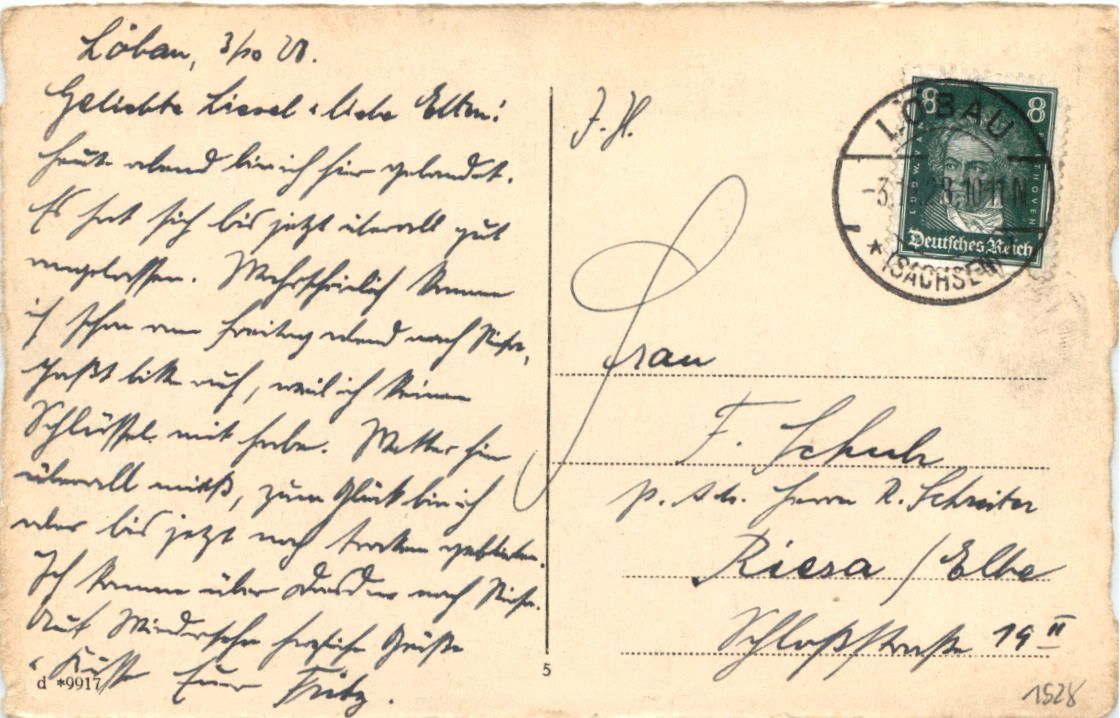 Löbau, 3/10 28.
Geliebte Liesel u. liebe Eltern!
Heute abend bin ich hier gelandet.
Es hat sich bis jetzt überall gut
angelassen. Wahrscheinlich komme
ich schon am Freitag abend nach Riesa,
paßt bitte auf, weil ich keinen
Schlüssel mit habe. Wetter hier
überall mieß, zum Glück bin ich
aber bis jetzt noch trocken geblieben.
Ich komme über Dresden nach Riesa.
Auf Wiedersehn herzliche Grüße
u. Küsse Euer Fritz.
d *9917
5
LÖBAU
-3. 28. 10-11 N
* (SACHSEN)
8 8
LUDW. VAN BEETHOVEN
Deutsches Reich
Frau
F. Schuh
p. Adr. Herrn R. Schreiter
Riesa / Elbe
Schloßstraße 19 II
1528